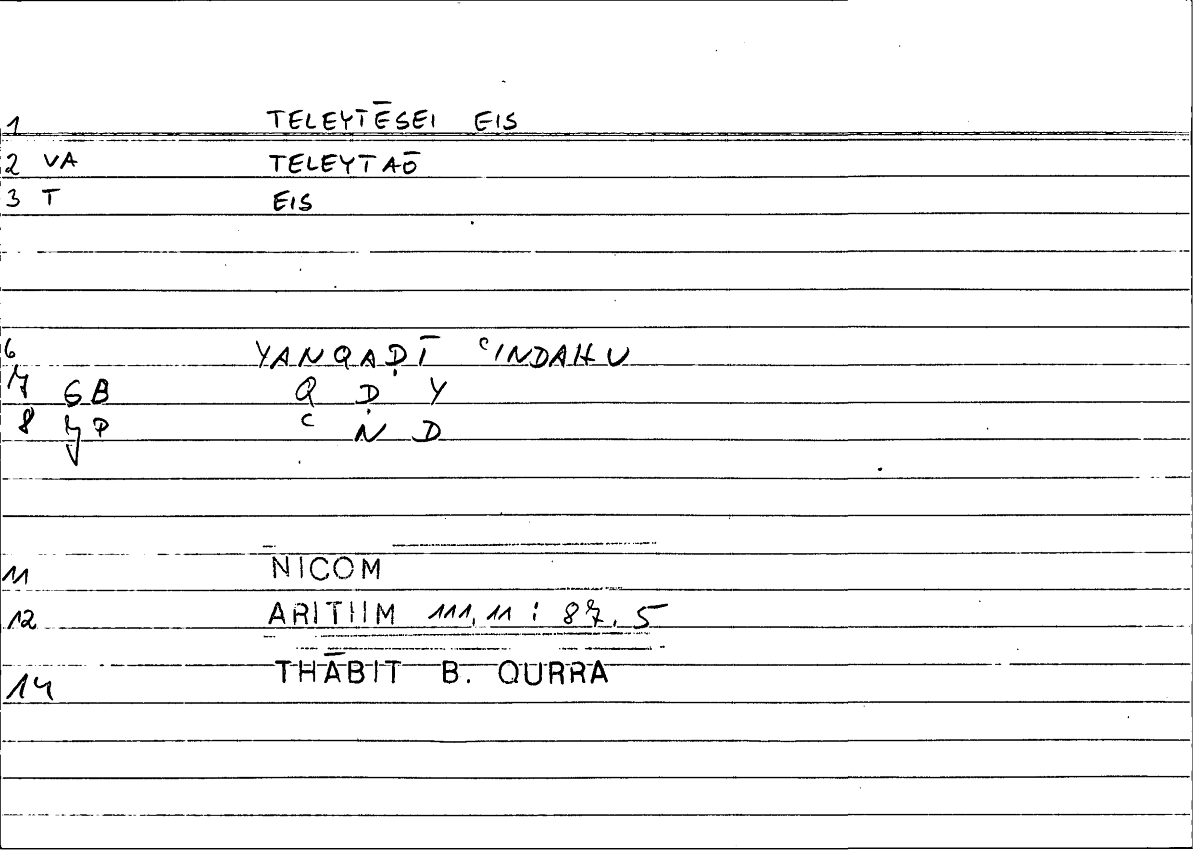 1 TELEYTĒSEI EIS
2 VA TELEYTAŌ
3 T EIS
6 YANQAḌĪ ʿINDAHU
7 GB Q Ḍ Y
8 ʿ N D
11 NICOM
12 ARITHM 111, 11 : 87, 5
14 THĀBIT B. QURRA